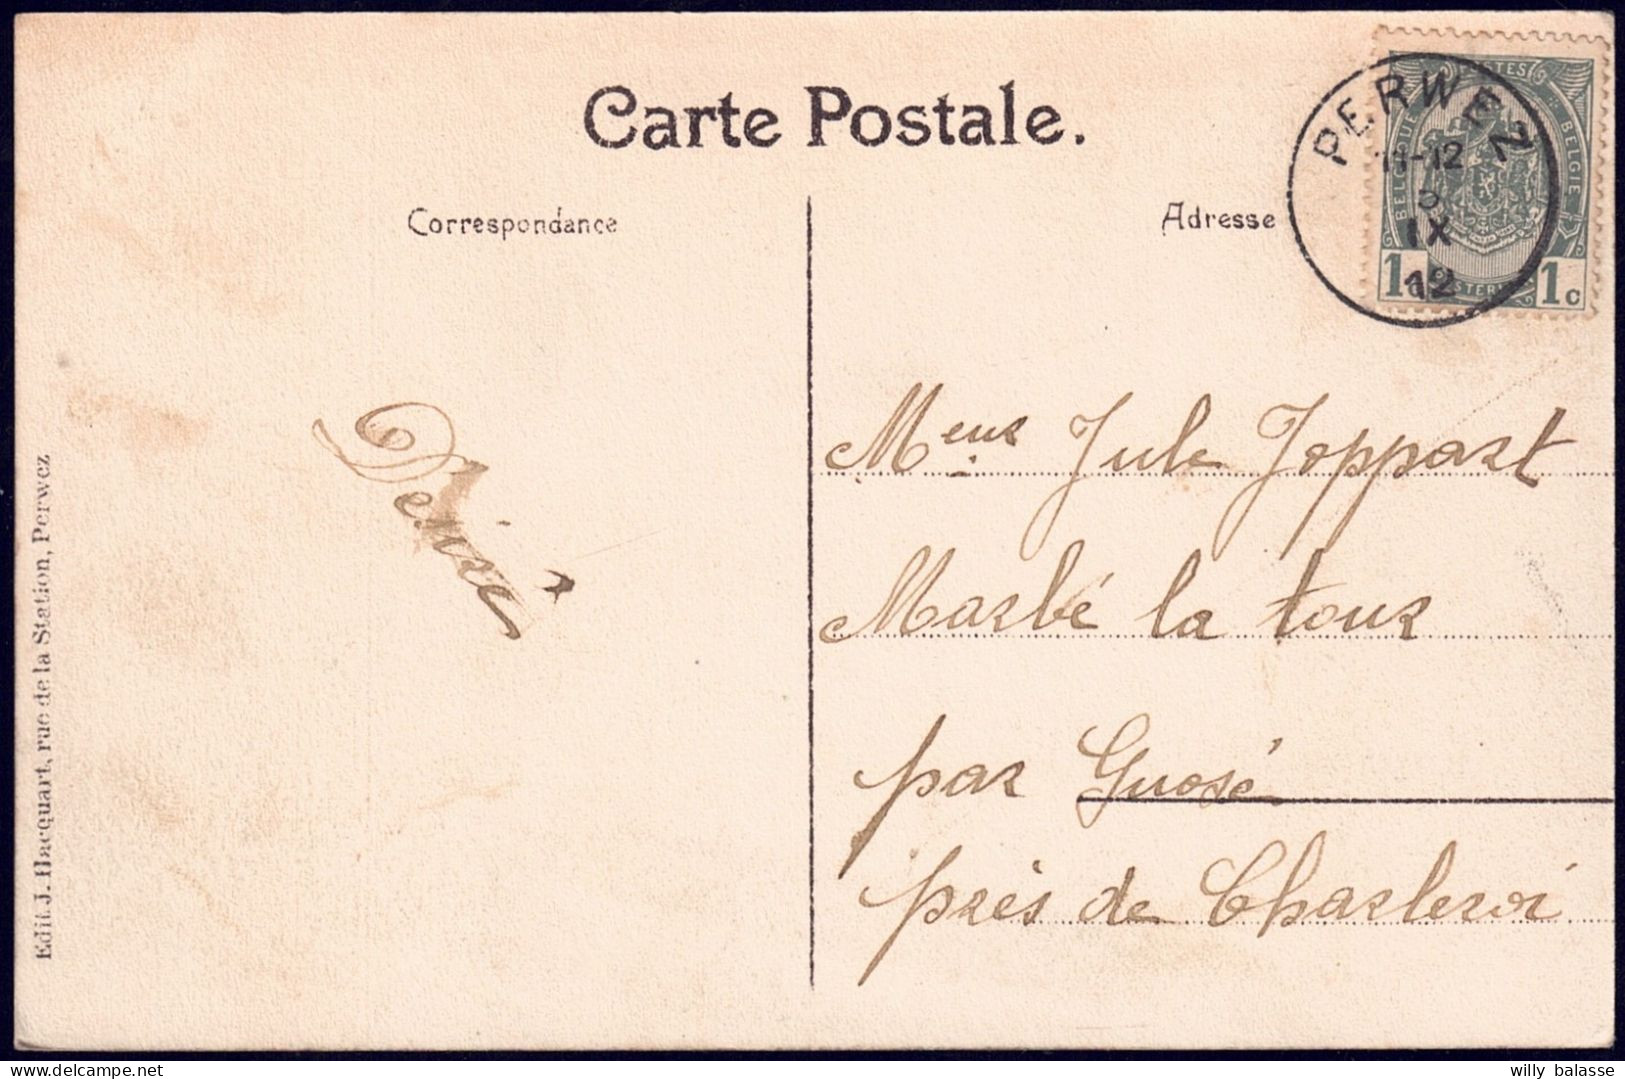 Carte Postale.
Correspondance
Adresse
PERWEZ
11-12
IX
12
POSTES
BELGIQUE
BELGIE
1c
Denise
Meur Jule Joppart
Marbé la tour
par Guosé
près de Charleroi
Edit. J. Hacquart, rue de la Station, Perwez
delcampe.net
willy balasse